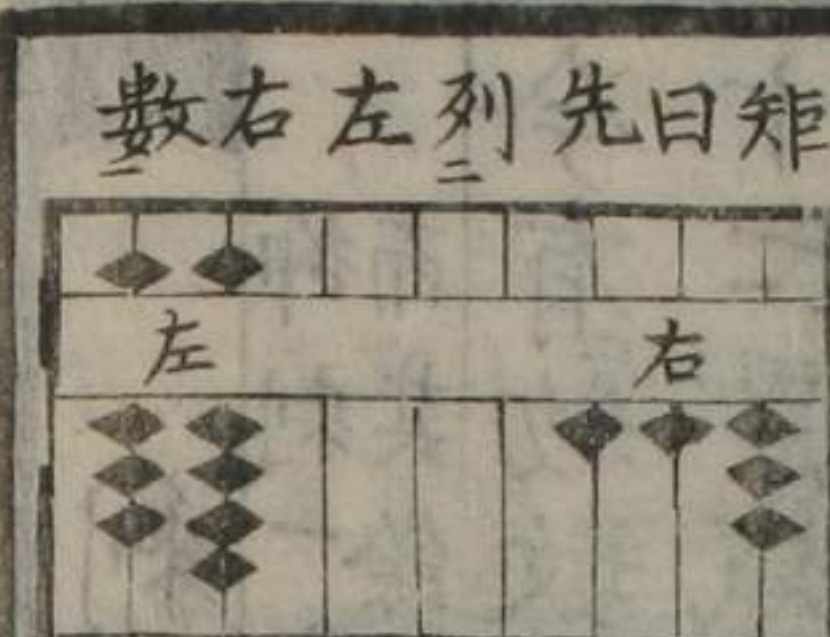 矩曰先列二左右數一
右
左